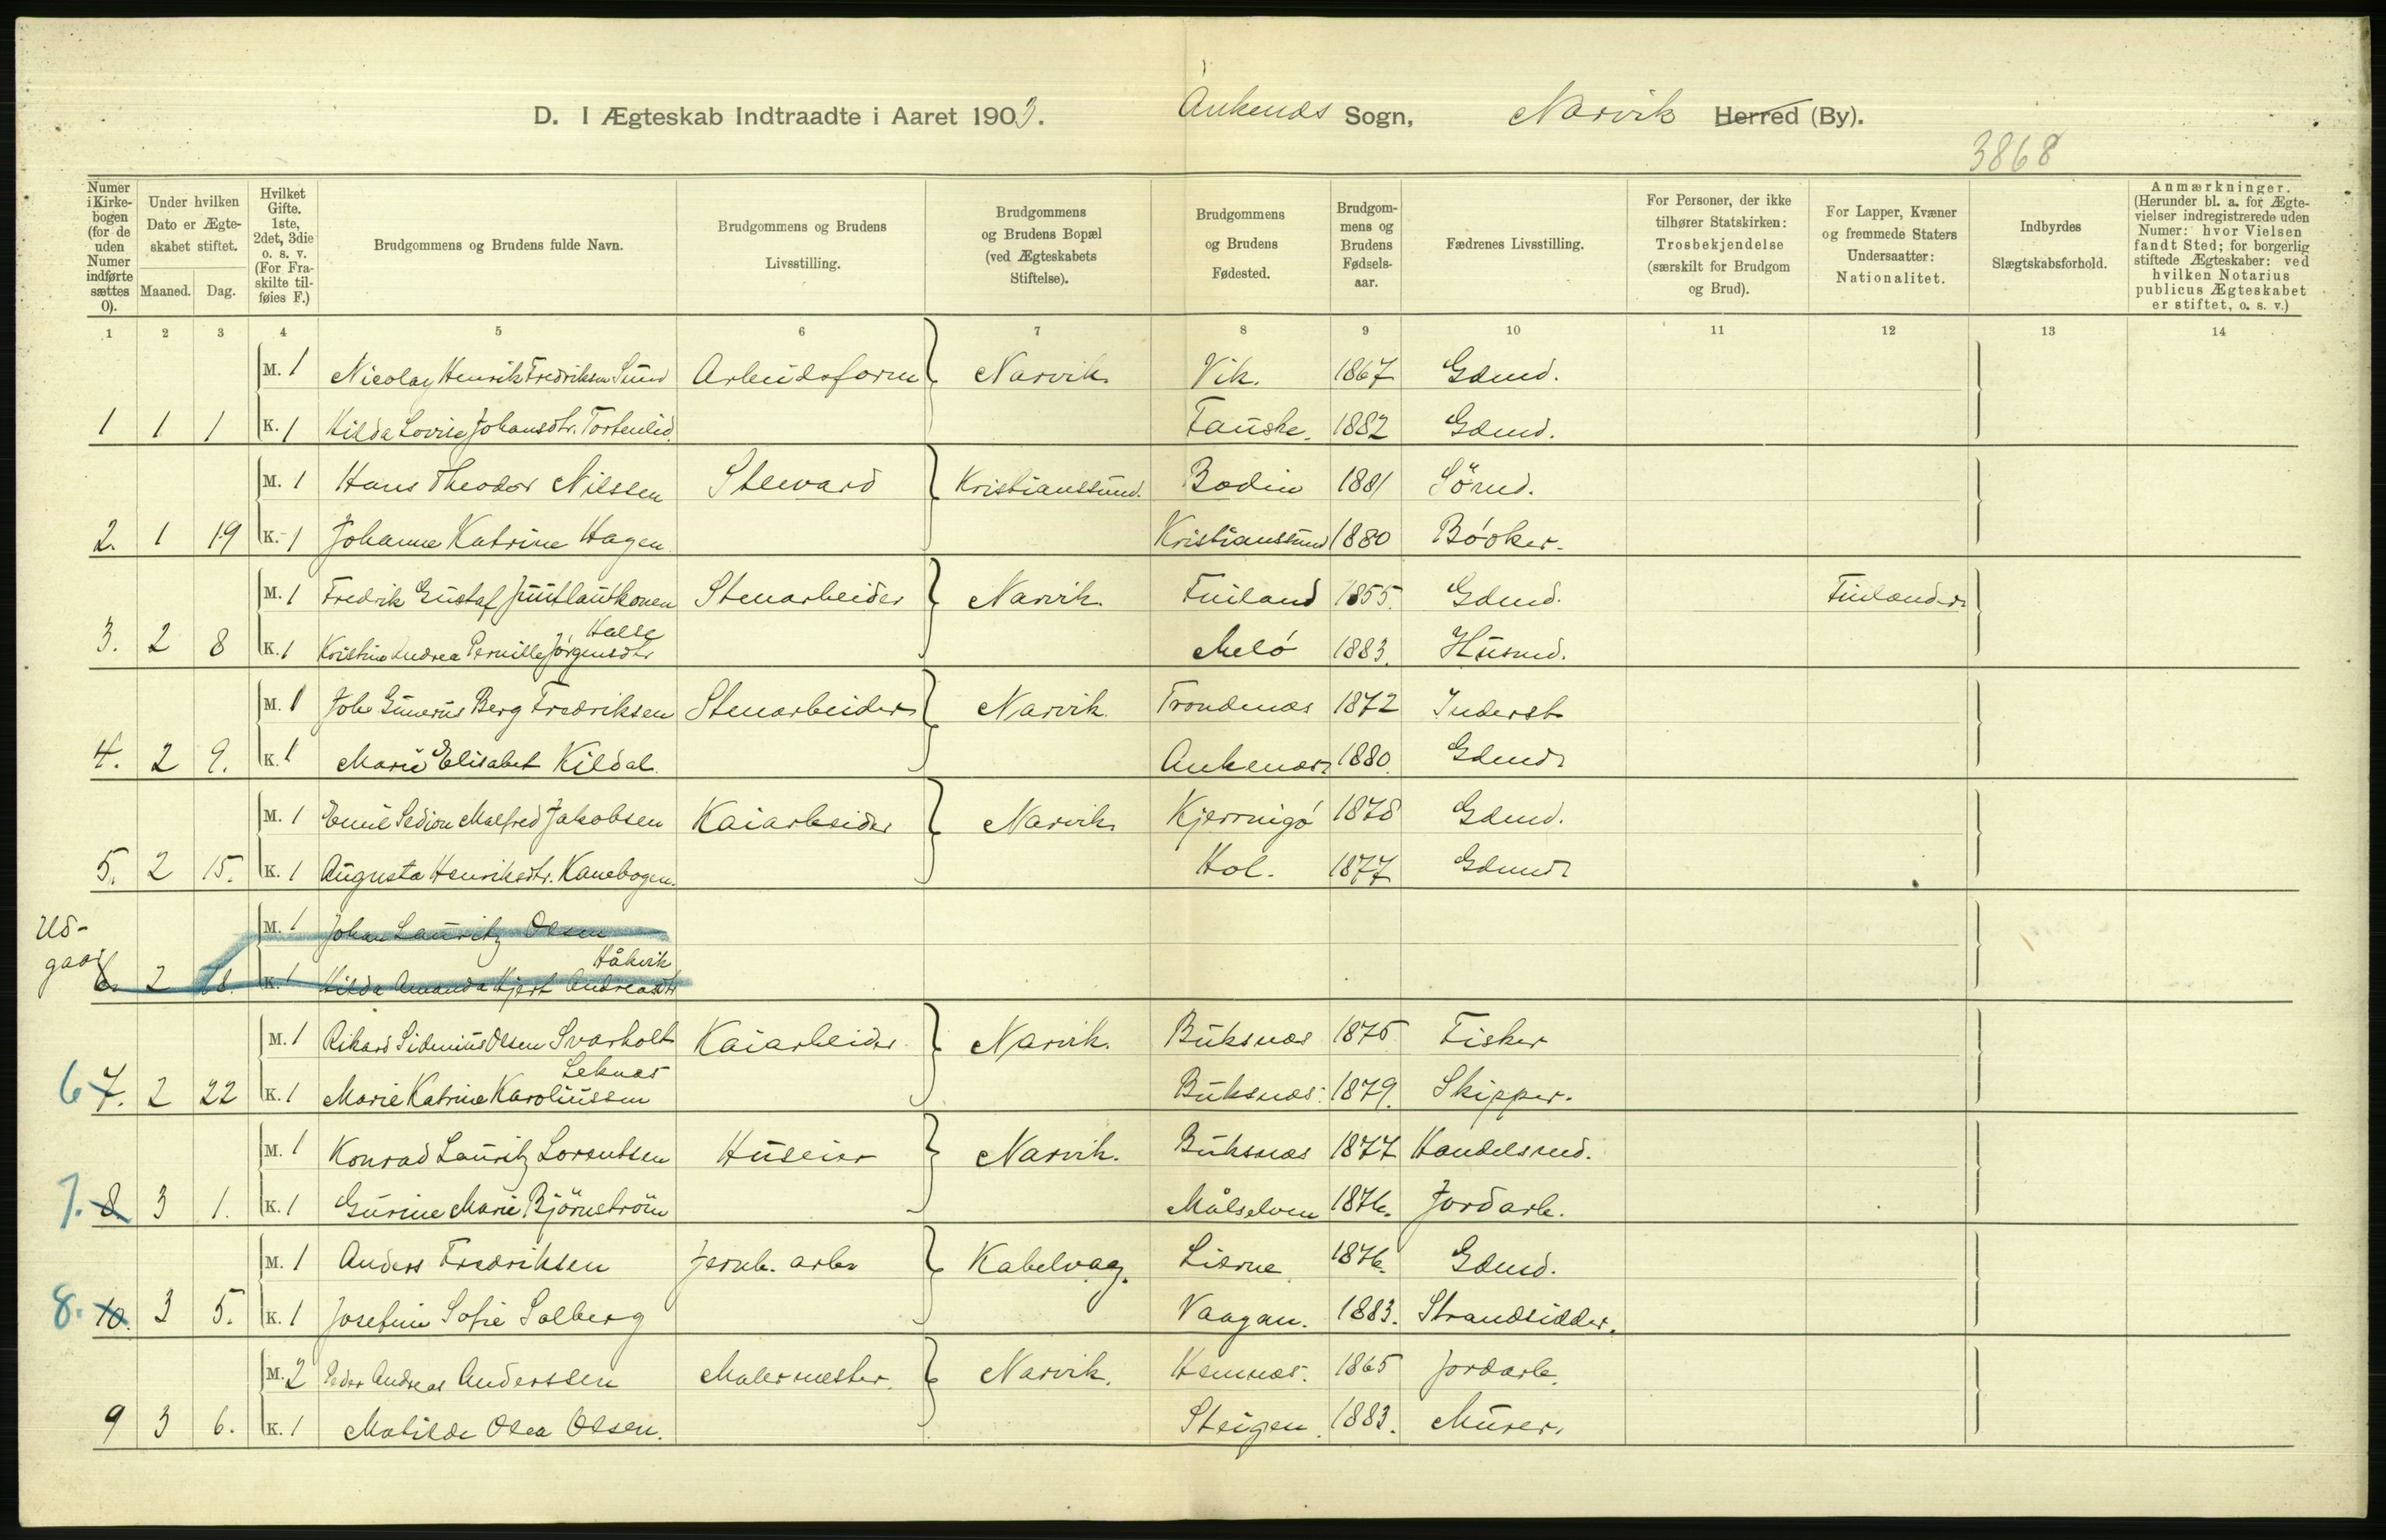 D. I Ægteskab Indtraadte i Aaret 1903. Ankenæs Sogn, Narvik Herred (By).
3868
Numer i Kirkebogen (for de uden Numer indførte sættes 0).
Under hvilken Dato er Ægteskabet stiftet.
Maaned. Dag.
Hvilket Gifte. 1ste, 2det, 3die o. s. v. (For Fraskilte tilføies F.)
Brudgommens og Brudens fulde Navn.
Brudgommens og Brudens Livsstilling.
Brudgommens og Brudens Bopæl (ved Ægteskabets Stiftelse).
Brudgommens og Brudens Fødested.
Brudgommens og Brudens Fødselsaar.
Fædrenes Livsstilling.
For Personer, der ikke tilhører Statskirken: Trosbekjendelse (særskilt for Brudgom og Brud).
For Lapper, Kvæner og fremmede Staters Undersaatter: Nationalitet.
Indbyrdes Slægtskabsforhold.
Anmærkninger. (Herunder bl. a. for Ægtevielser indregistrerede uden Numer: hvor Vielsen fandt Sted; for borgerlig stiftede Ægteskaber: ved hvilken Notarius publicus Ægteskabet er stiftet, o. s. v.)
1 2 3 4 5 6 7 8 9 10 11 12 13 14
M. 1 Nicolay Henrik Fredriksen Sund Arbeidsform Narvik Vik. 1867 Gdmd.
1 1 1 K. 1 Hilda Lovise Johansdtr. Tortenlid. Fauske. 1882 Gdmd.
M. 1 Hans Theodor Nilssen Steward Kristianssund. Bodin 1881 Sömd.
2. 1 19 K. 1 Johanne Katrine Hagen Kristianssund 1880 Bóker.
M. 1 Fredrik Gustaf Stenarbeider Narvik Finland 1855. Gdmd. Finlænder
Halse
3. 2 8 K. 1 Kristine Andrea Pernille Jørgensdtr Meló 1883. Husmd.
M. 1 Joh. Gunerius Berg Fredriksen Stenarbeider Narvik. Trondenæs 1872 Inderst
4. 2 9. K. 1 Marie Elisabet Kildal. Ankenæs 1880. Gdmd.
M. 1 Emil Sedion Malfred Jakobsen Kaiarbeider Narvik Kjerringó 1878 Gdmd.
5. 2 15. K. 1 Augusta Henriksdtr. Kanebogen. Hol. 1877 Gdmd.
Udgaar
M. 1 Johan Lauritz Olsen
Håkvik
6. 2 18. K. 1 Hilda Amanda Hjert Andreasdtr
M. 1 Rikard Sidenius Olsen Svarholt Kaiarbeider Narvik. Buksnæs 1875 Fisker
Leknæs
6 7. 2 22 K. 1 Marie Katrine Karoliussen Buksnæs. 1879. Skipper.
M. 1 Konrad Lauritz Lorentsen Huseier Narvik. Buksnæs 1877 Handelsmd.
7. 8 3 1. K. 1 Gurine Marie Björnström Målselven 1876. Jordarb.
M. 1 Anders Fredriksen Jernb. arb. Kabelvag. Lierne 1876. Gdmd.
8. 10. 3 5. K. 1 Josefine Sofie Solberg Vaagan. 1883. Strandsidder.
M. 2 Peder Andreas Anderssen Malermester. Narvik. Hemnæs. 1865 Jordarb.
9 3 6. K. 1 Matilde Olea Olsen. Steigen. 1883. Murer.